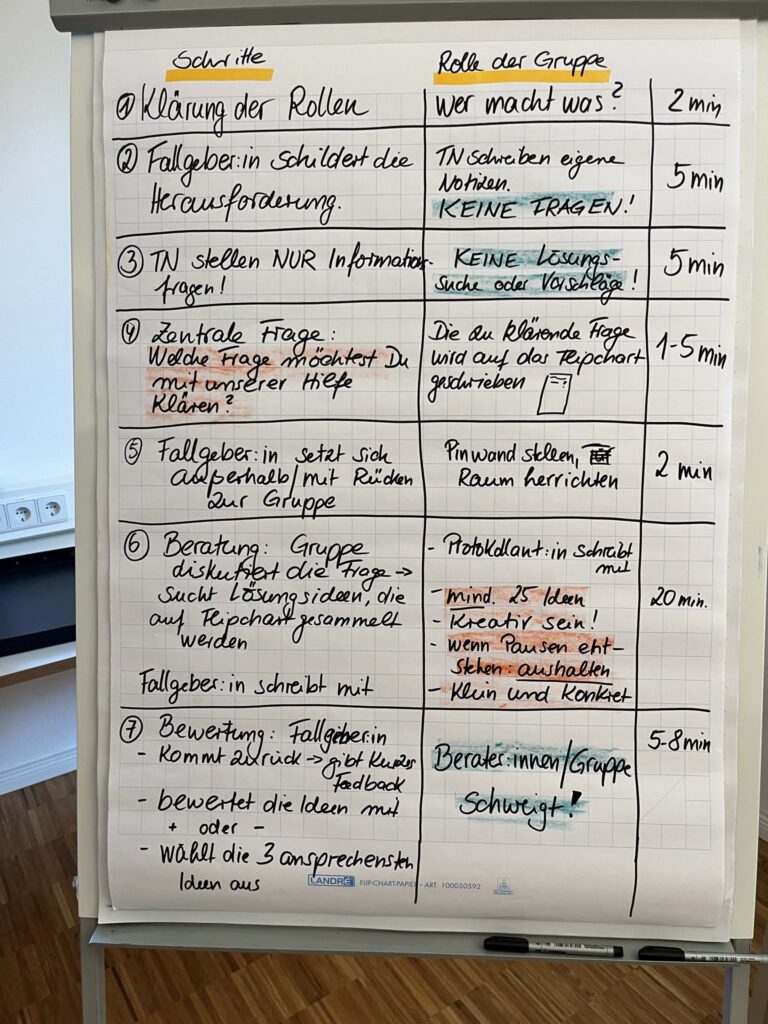 Schritte
Rolle der Gruppe
① Klärung der Rollen
Wer macht was?
2 min
② Fallgeber:in schildert die
Herausforderung.
TN schreiben eigene
Notizen.
KEINE FRAGEN!
5 min
③ TN stellen NUR Informations-
fragen!
KEINE Lösungs-
suche oder Vorschläge!
5 min
④ Zentrale Frage:
Welche Frage möchtest Du
mit unserer Hilfe
klären?
Die zu klärende Frage
wird auf das Flipchart
geschrieben
1-5 min
⑤ Fallgeber:in setzt sich
außerhalb/mit Rücken
zur Gruppe
Pinwand stellen,
Raum herrichten
2 min
⑥ Beratung: Gruppe
diskutiert die Frage →
sucht Lösungsideen, die
auf Flipchart gesammelt
werden
Fallgeber:in schreibt mit
- Protokollant:in schreibt
mit
- mind. 25 Ideen
- Kreativ sein!
- wenn Pausen ent-
stehen: aushalten
- Klein und Konkret
20 min.
⑦ Bewertung: Fallgeber:in
- kommt zurück → gibt kurzes
Feedback
- bewertet die Ideen mit
+ oder -
- wählt die 3 ansprechensten
Ideen aus
Berater:innen/Gruppe
Schweigt!
5-8 min
LANDRÉ FLIP-CHART-PAPIER • ART. 100050592